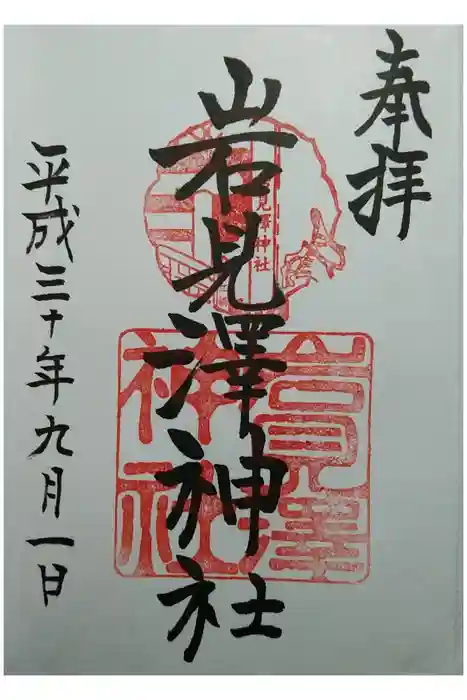 奉拝
岩見澤神社
平成三十年九月一日
見澤神社
岩見澤
神社